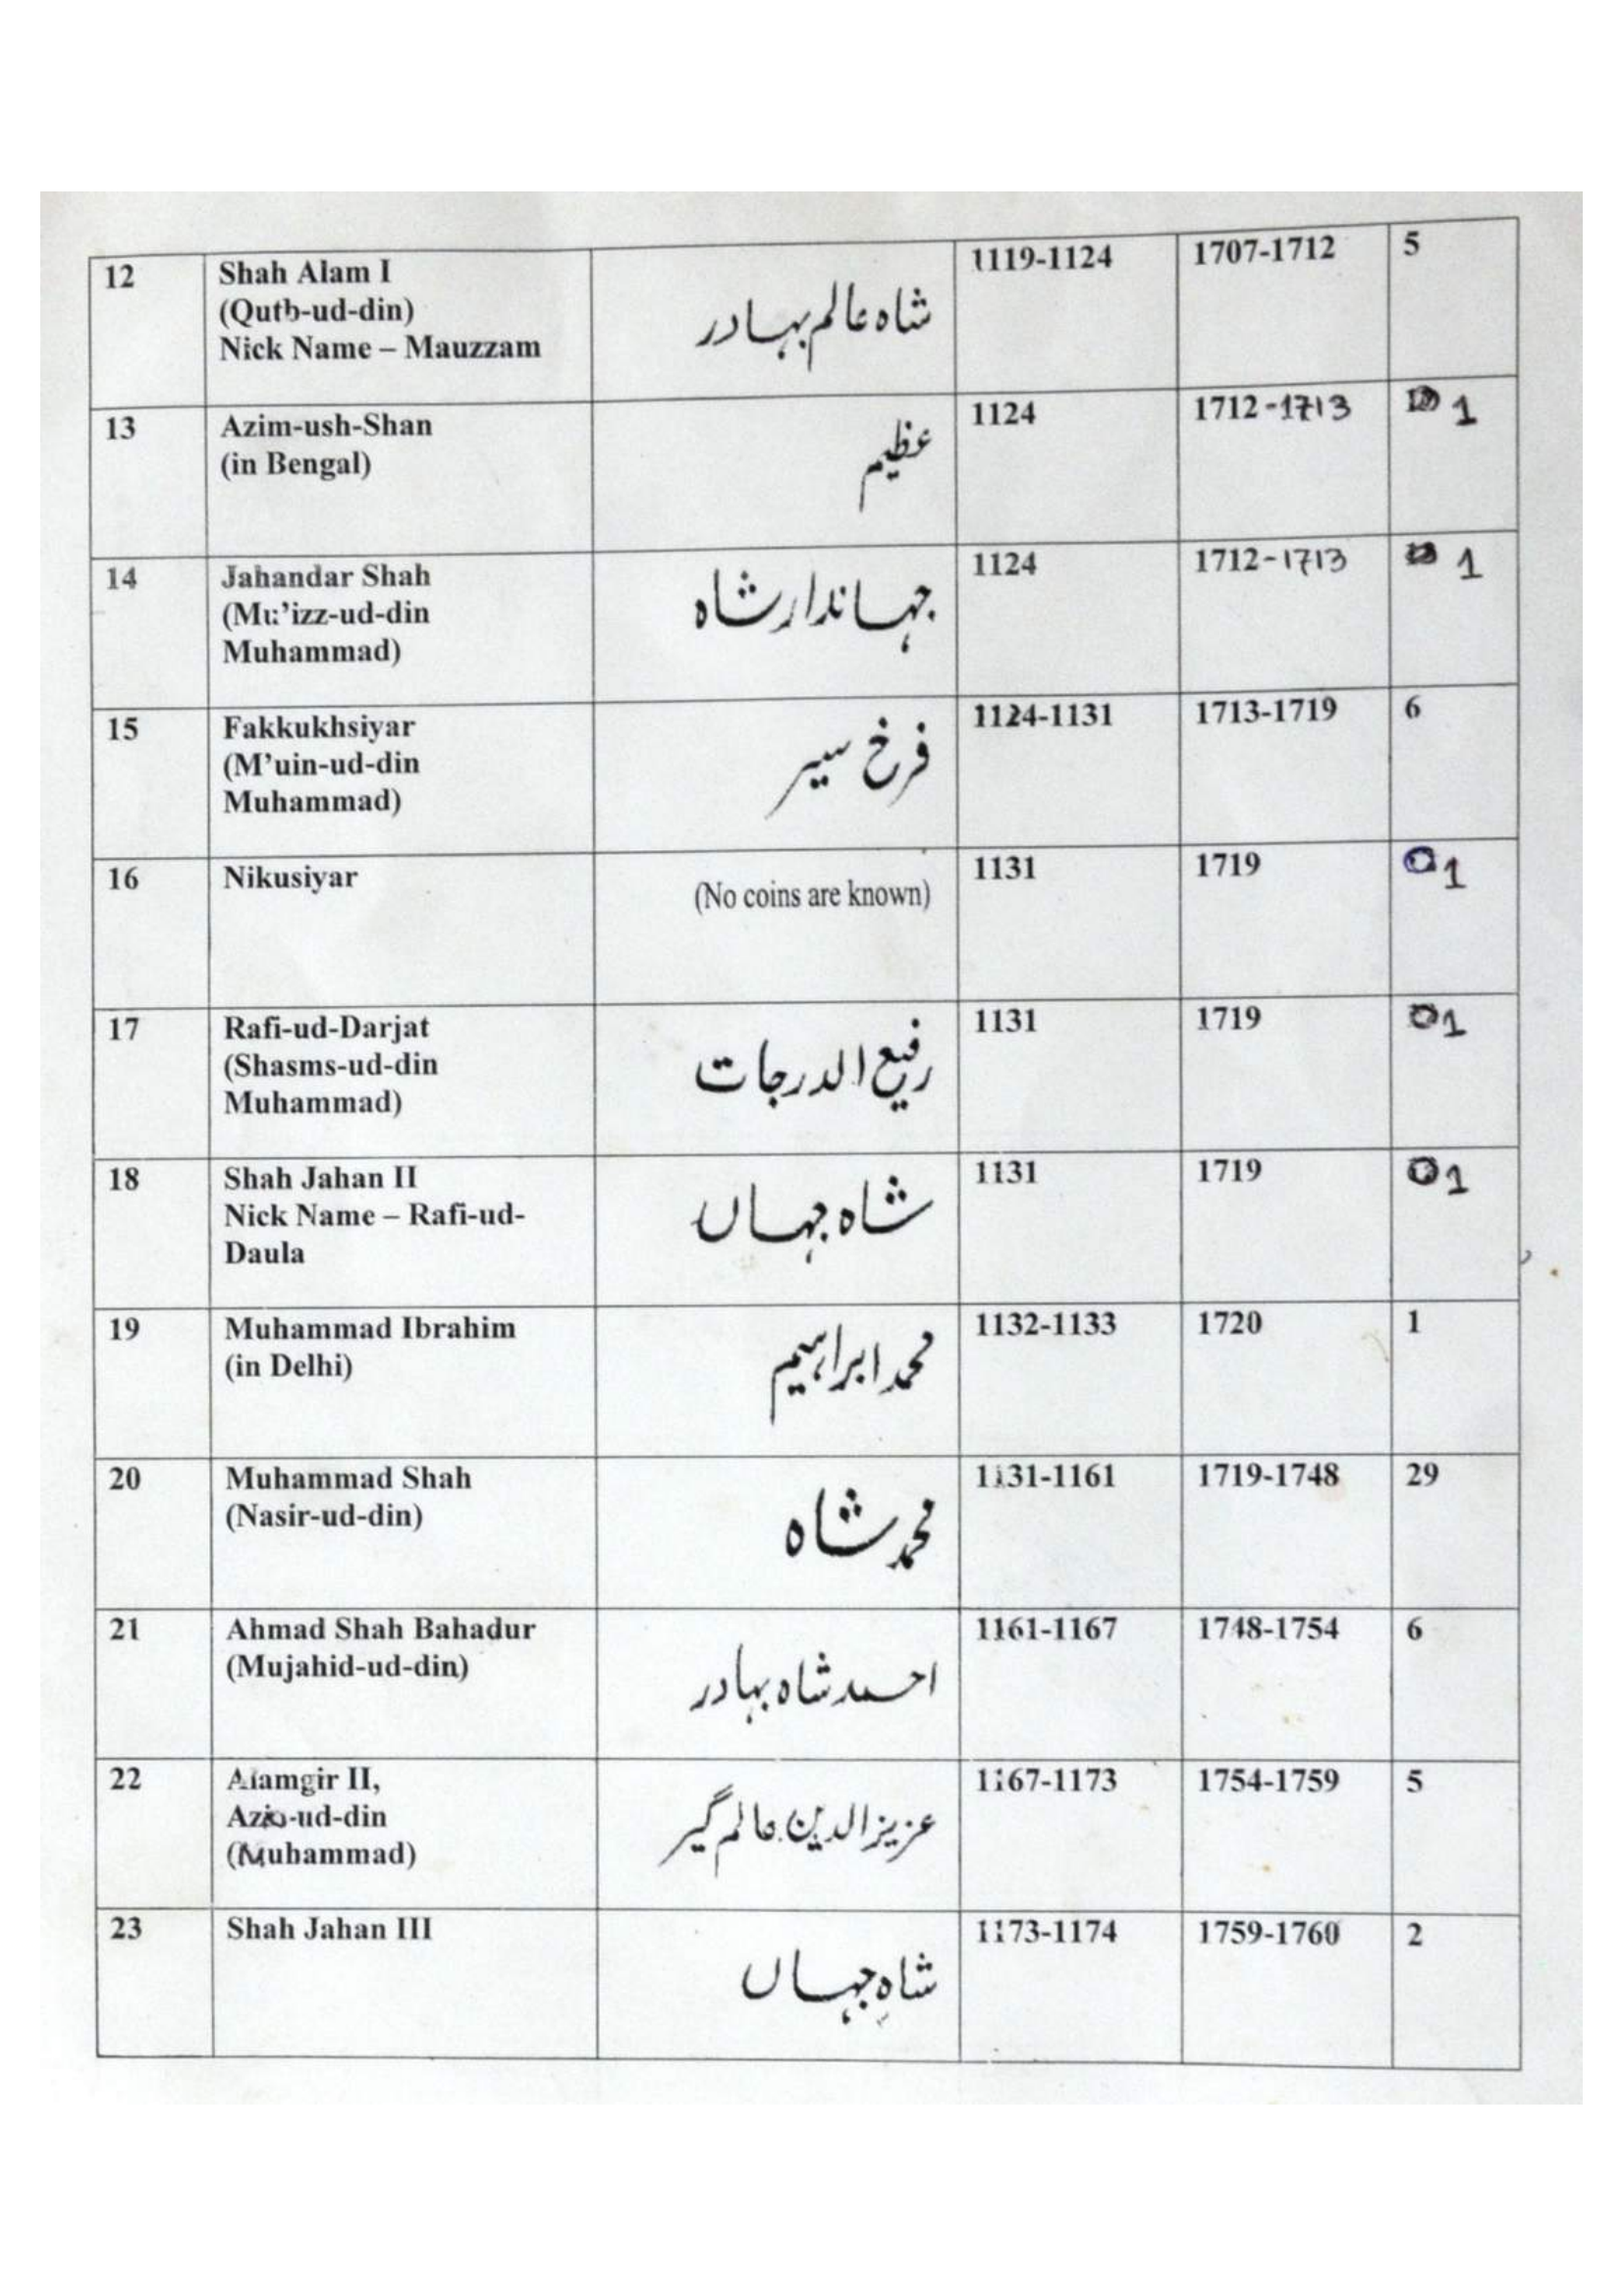 12
Shah Alam I
(Qutb-ud-din)
Nick Name – Mauzzam
شاہ عالم بہادر
1119-1124
1707-1712
5
13
Azim-ush-Shan
(in Bengal)
عظیم
1124
1712-1713
1
14
Jahandar Shah
(Mu'izz-ud-din
Muhammad)
جہاندار شاہ
1124
1712-1713
1
15
Fakkukhsiyar
(M'uin-ud-din
Muhammad)
فرخ سیر
1124-1131
1713-1719
6
16
Nikusiyar
(No coins are known)
1131
1719
1
17
Rafi-ud-Darjat
(Shasms-ud-din
Muhammad)
رفیع الدرجات
1131
1719
1
18
Shah Jahan II
Nick Name – Rafi-ud-
Daula
شاہ جہاں
1131
1719
1
19
Muhammad Ibrahim
(in Delhi)
محمد ابراہیم
1132-1133
1720
1
20
Muhammad Shah
(Nasir-ud-din)
محمد شاہ
1131-1161
1719-1748
29
21
Ahmad Shah Bahadur
(Mujahid-ud-din)
احمد شاہ بہادر
1161-1167
1748-1754
6
22
Alamgir II,
-ud-din
(Muhammad)
عزیز الدین عالم گیر
1167-1173
1754-1759
5
23
Shah Jahan III
شاہ جہاں
1173-1174
1759-1760
2